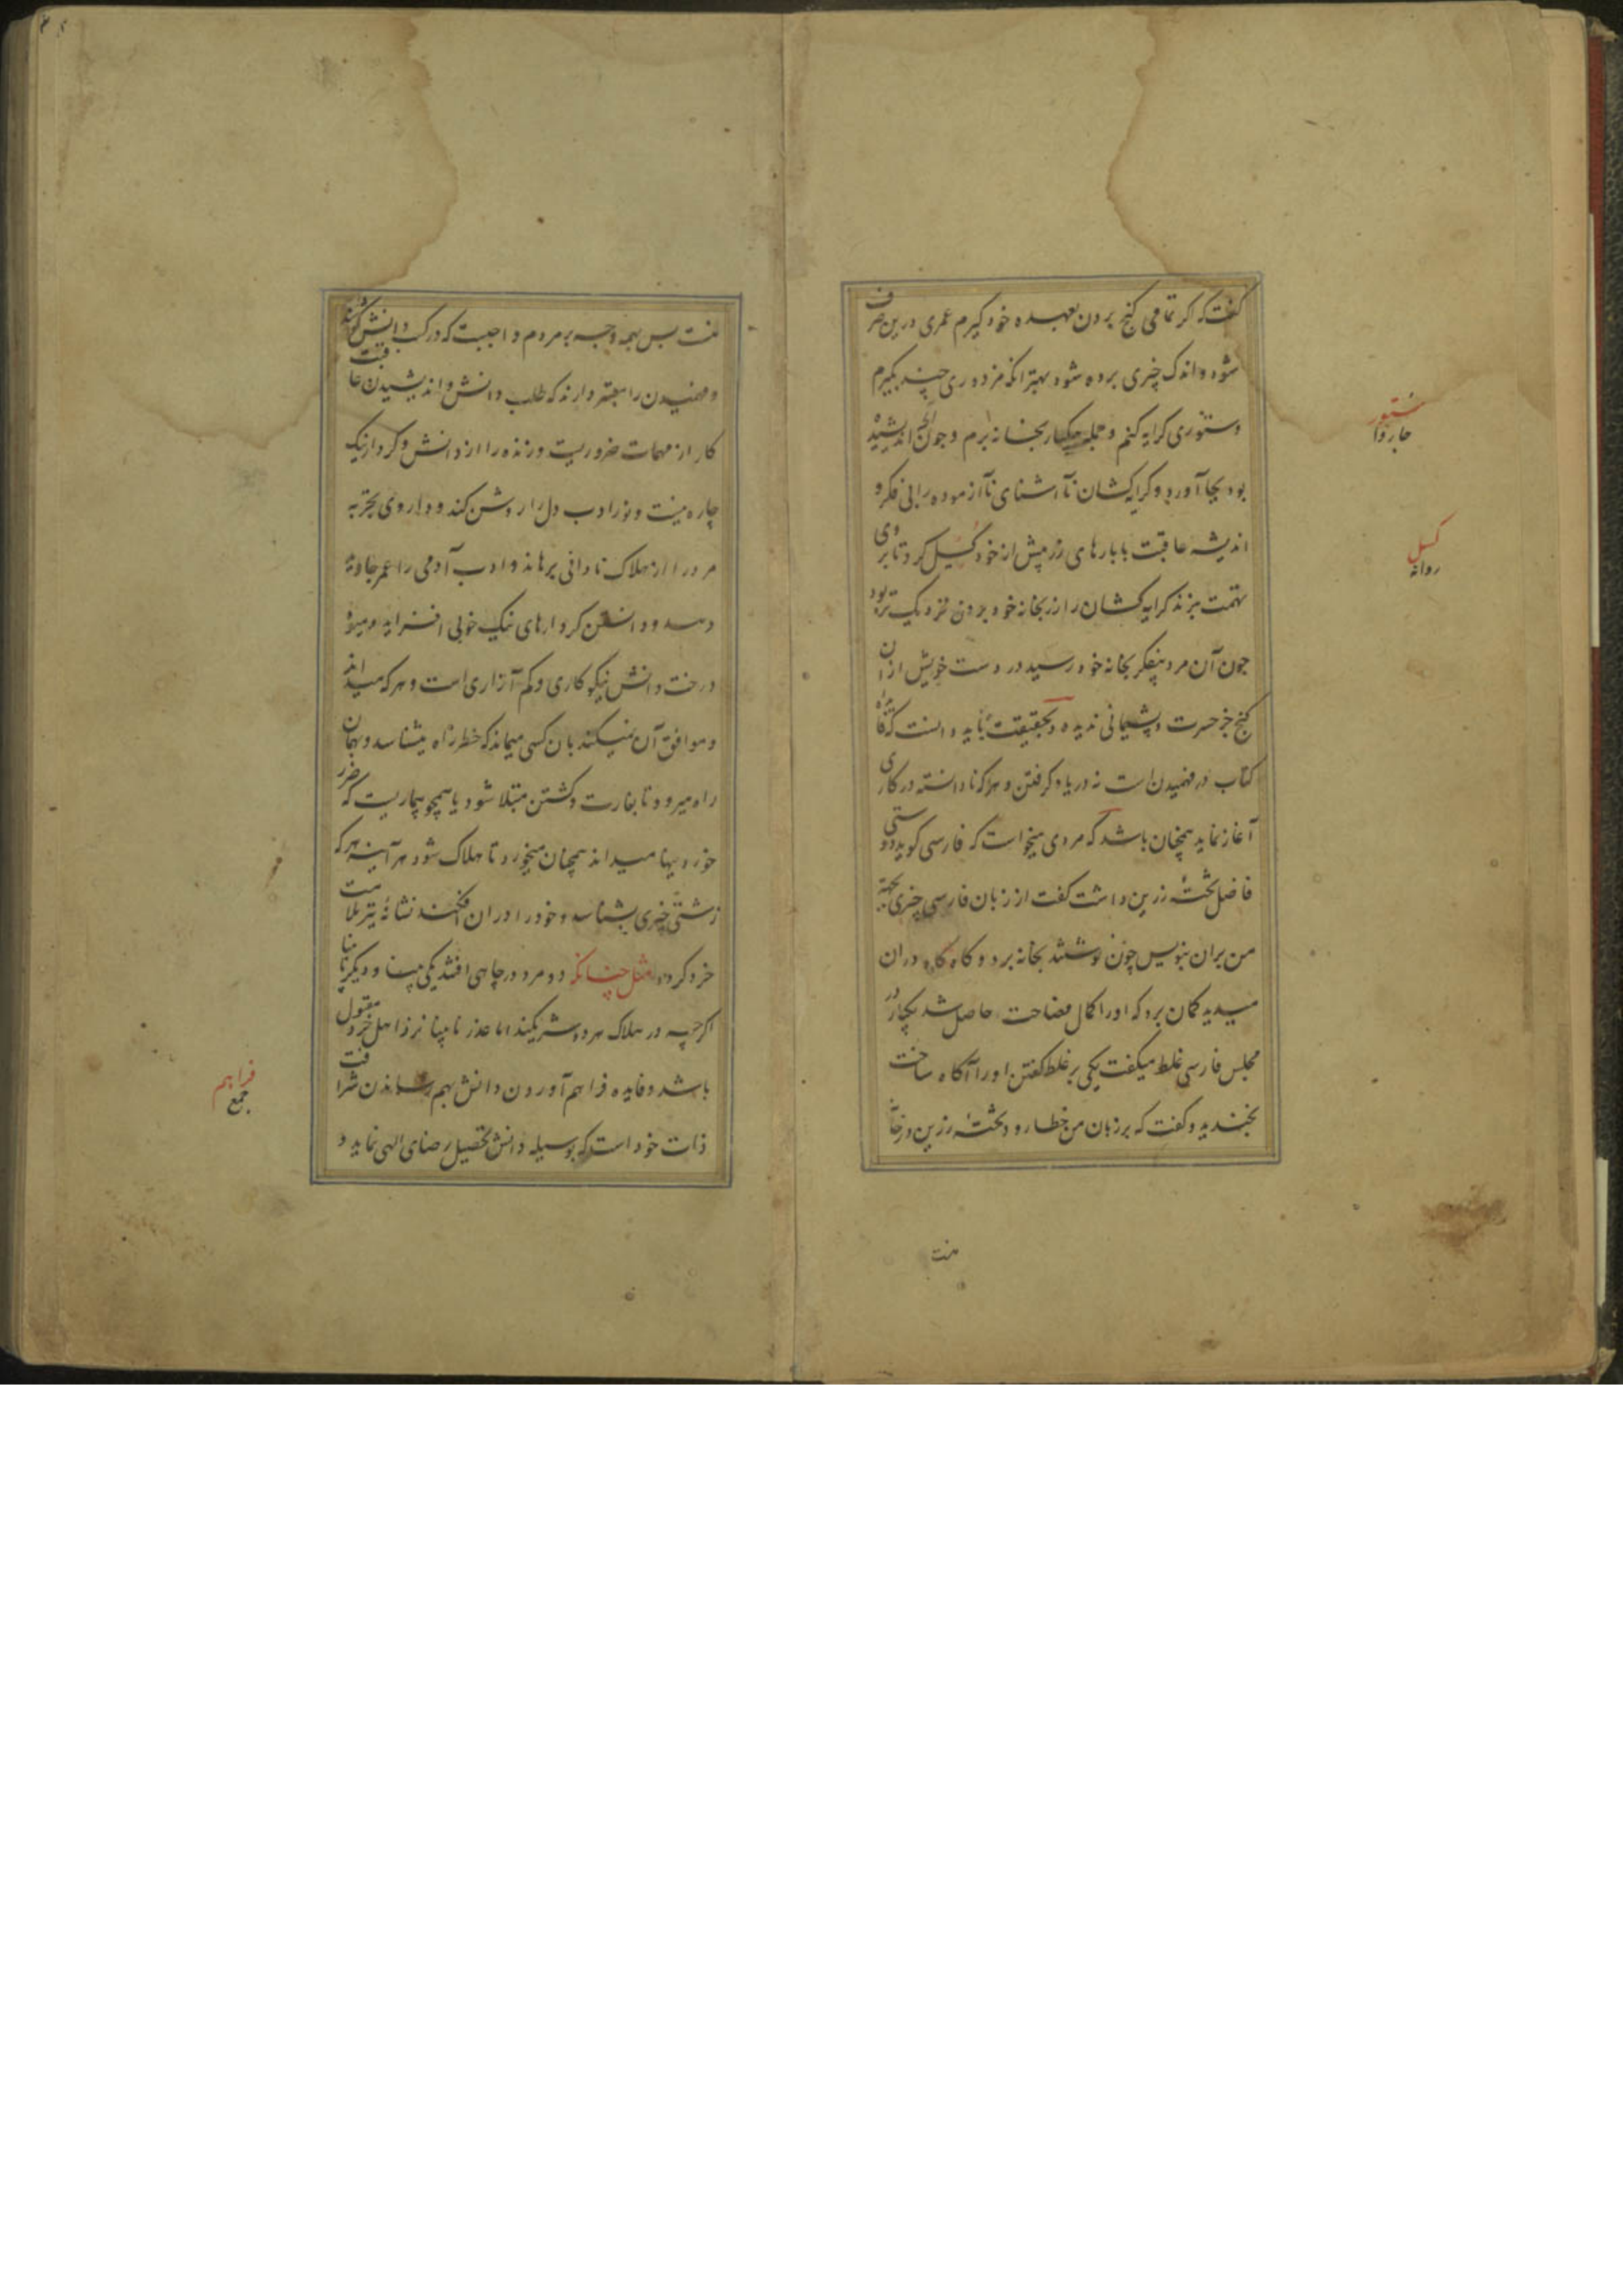 گفت که اگر تمامی گنج بردن بعهده خود گیرم عمری درین صرف
شود و اندک چیزی برده شود بهتر انکه مزدوری چند بگیرم
و ستوری کرایه کنم و جمله یکبار بخانه برم و چون آنچه اندیشیده
بود بجا آورد و کرایه کشان ناآشنای ناآزموده را بی فکر و
اندیشه عاقبت با بارهای زر پیش از خود گسیل کرد تا بروی
تهمت نبرند کرایه کشان را زر بخانه خود بردن نزدیک تر بود
چون آن مرد بیفکر بخانه خود رسید در دست خویش از آن
گنج جز حسرت و پشیمانی ندید و بحقیقت باید دانست که فایده
کتاب در فهمیدن است نه در یاد گرفتن و هر که نادانسته در کاری
آغاز نماید همچنان باشد که مردی میخواست که فارسی گوید دوستی
فاضل تختهٔ زرین داشت گفت از زبان فارسی چیزی بجهة
من بران بنویس چون نوشتند بخانه برد و گاه گاه دران
میدید گمان برد که او را کمال فصاحت حاصل شد یکبار در
مجلس فارسی غلط میگفت یکی بر غلط گفتن او را آگاه ساخت
بخندید و گفت که بر زبان من خطا رود و تختهٔ زرین در خانه
منت
ستور
جاروا
گسیل
روانه
منت پس بهمه وجه بر مردم واجبست که در کسب دانش کوشند
و فهمیدن را معتبر دارند که طلب دانش و اندیشیدن عاقبت
کار از مهمات ضروریست و زنده را از دانش و کردار نیک
چاره نیست و نور ادب دل را روشن کند و داروی تجربه
مرد را از هلاک نادانی برهاند و ادب آدمی را عمر جاودانه
دهد و دانستن کردارهای نیک خوبی افزاید و میوهٔ
درخت دانش نیکوکاری و کم آزاری است و هر که میداند
و موافق آن نمیکند بان کسی میماند که خطر راه میشناسد و بهمان
راه میرود تا بغارت و کشتن مبتلا شود یا همچو بیماریست که ضرر
خوردنیها میداند همچنان میخورد تا هلاک شود هر آینه هر که
زشتی چیزی بشناسد و خود را دران افکند نشانهٔ تیر ملامت
خرد گردد مثل چنانکه دو مرد در چاهی افتند یکی بینا و دیگر نابینا
اگرچه در هلاک هر دو شریکند اما عذر نابینا نزد اهل خرد مقبول
باشد و فایده فراهم آوردن دانش بهم رساندن شرافت
ذات خود است که بوسیله دانش تحصیل رضای الهی نماید و
فراهم
جمع